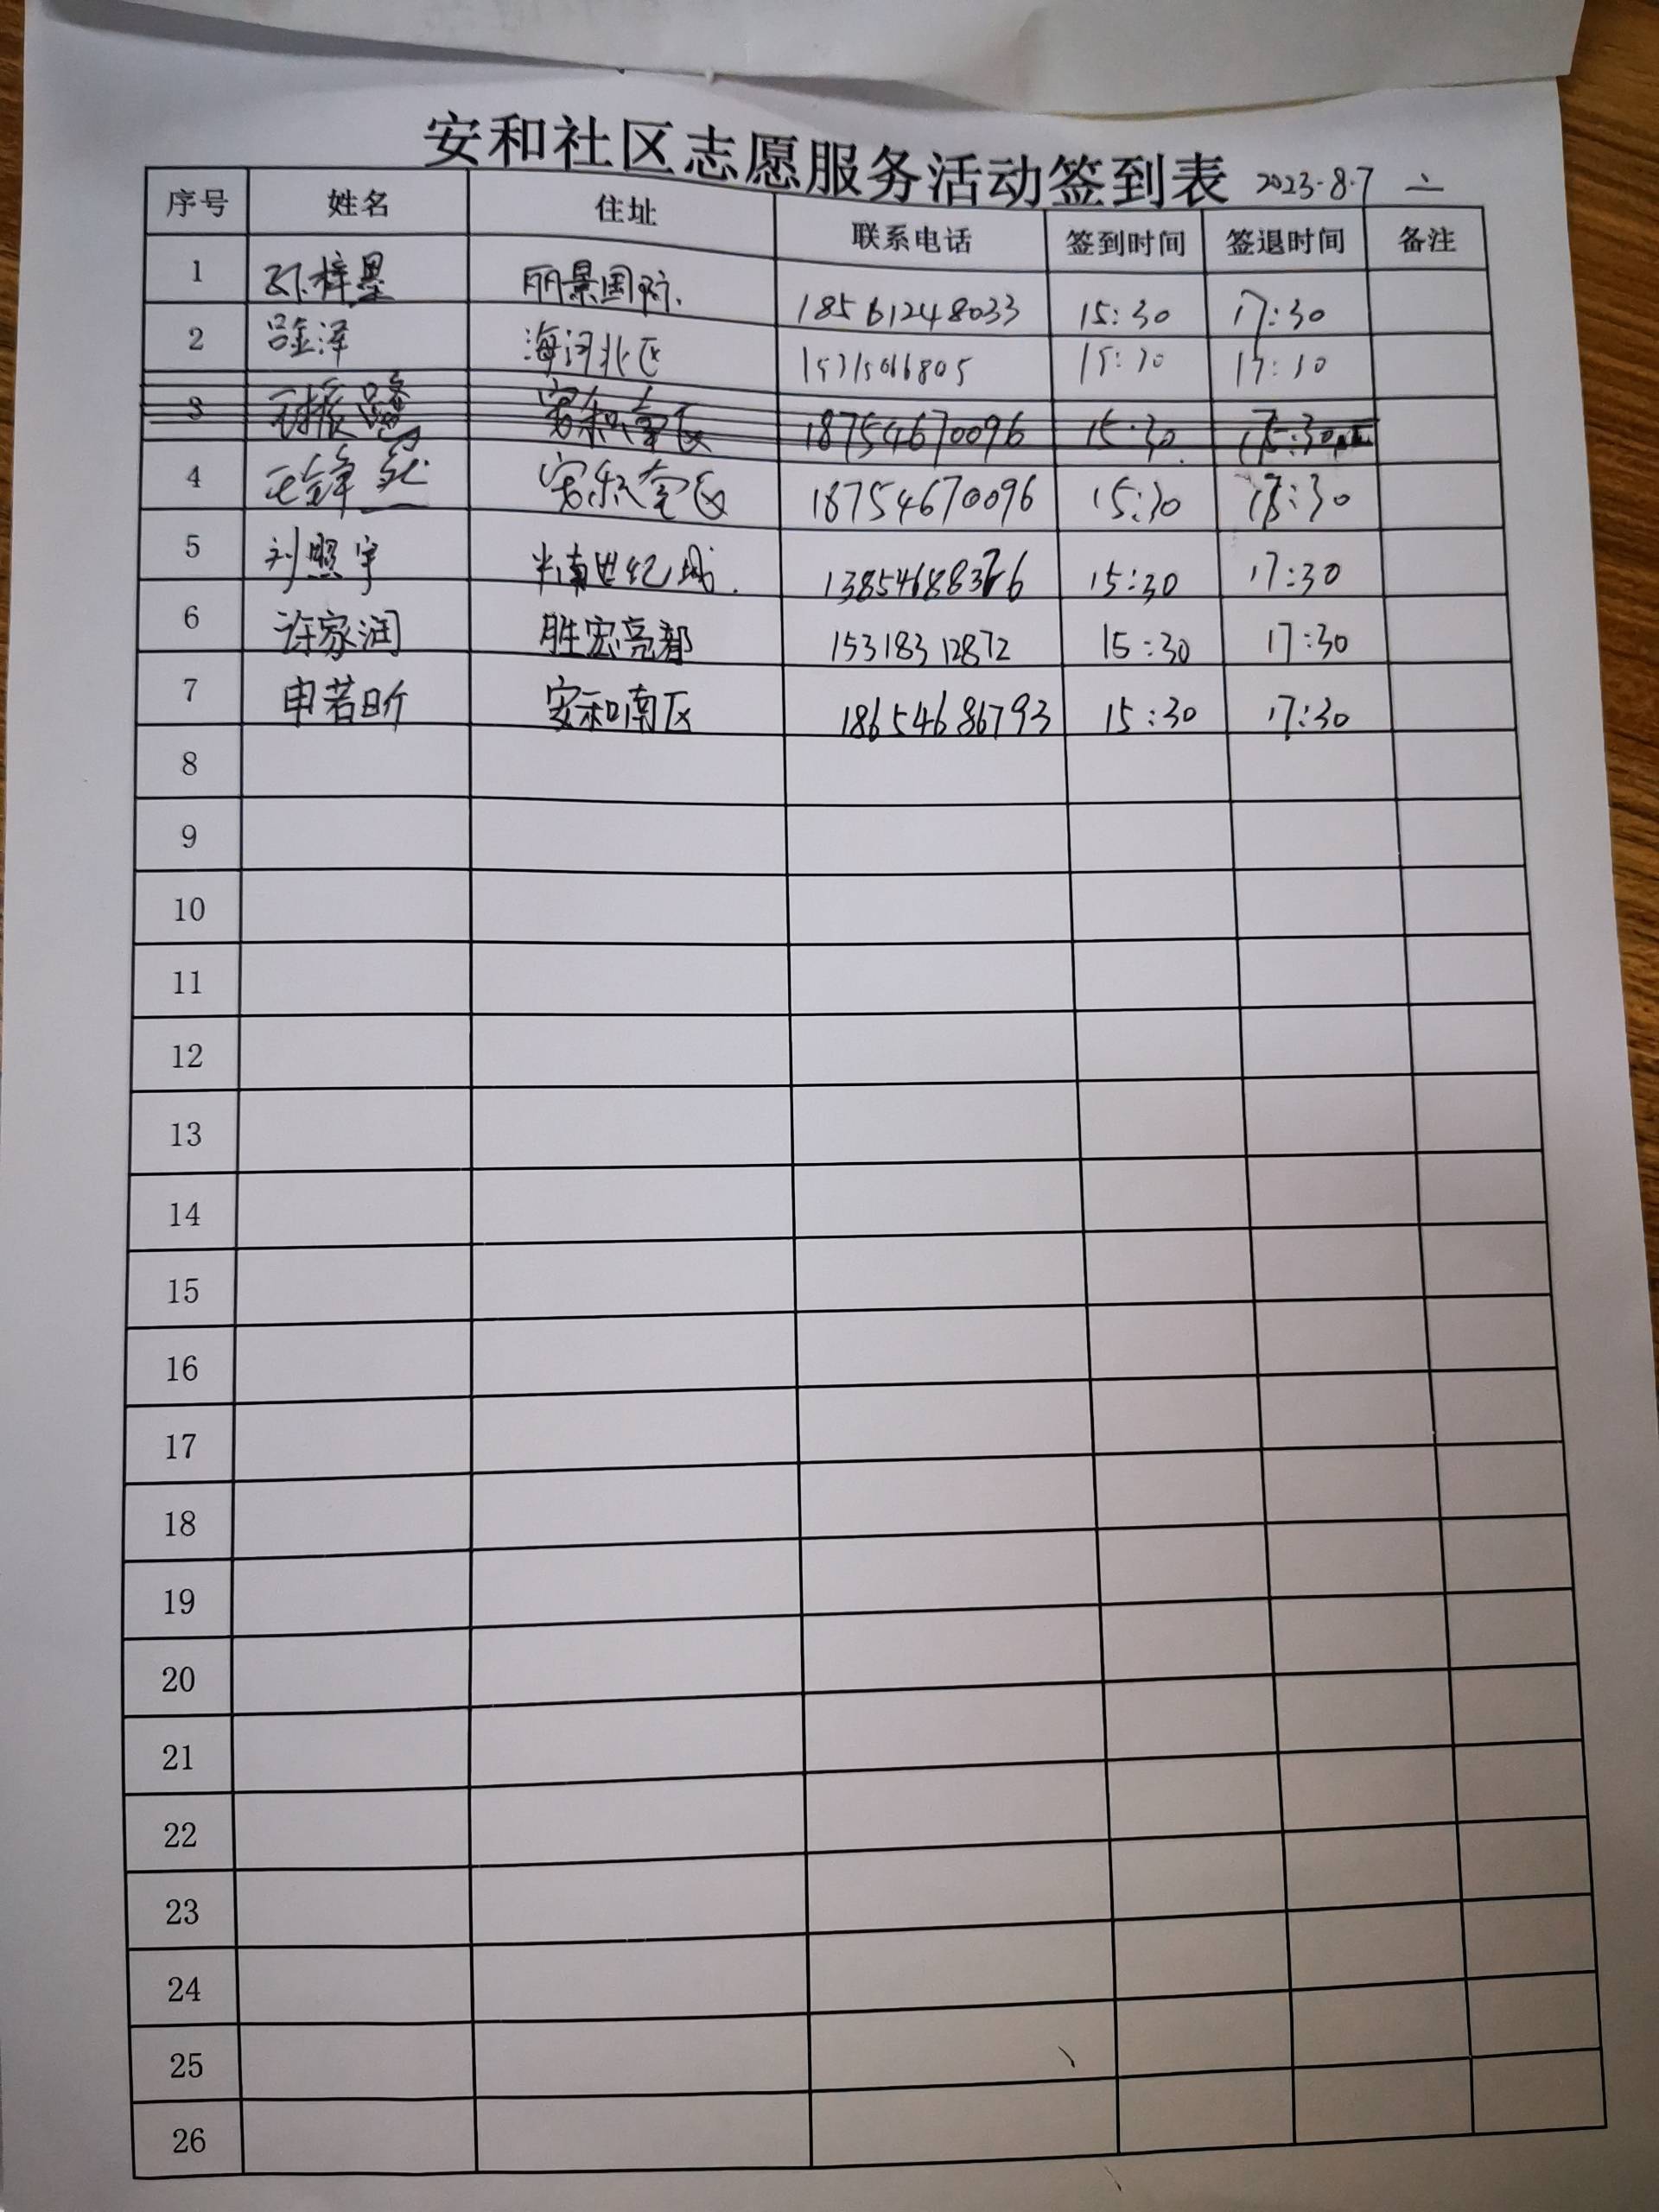 安和社区志愿服务活动签到表 2023.8.7
序号 姓名 住址 联系电话 签到时间 签退时间 备注
1 孙梓墨 丽景国际. 18561248033 15:30 17:30
2 吕金泽 海河北区 15:30 17:30
3 18754670096 15:30
4 18754670096 15:30 :30
5 刘照宇 世纪城. 15:30 17:30
6 许家润 胜宏亮都 15318312872 15:30 17:30
7 申若昕 安和南区 18654686793 15:30 17:30
8
9
10
11
12
13
14
15
16
17
18
19
20
21
22
23
24
25
26